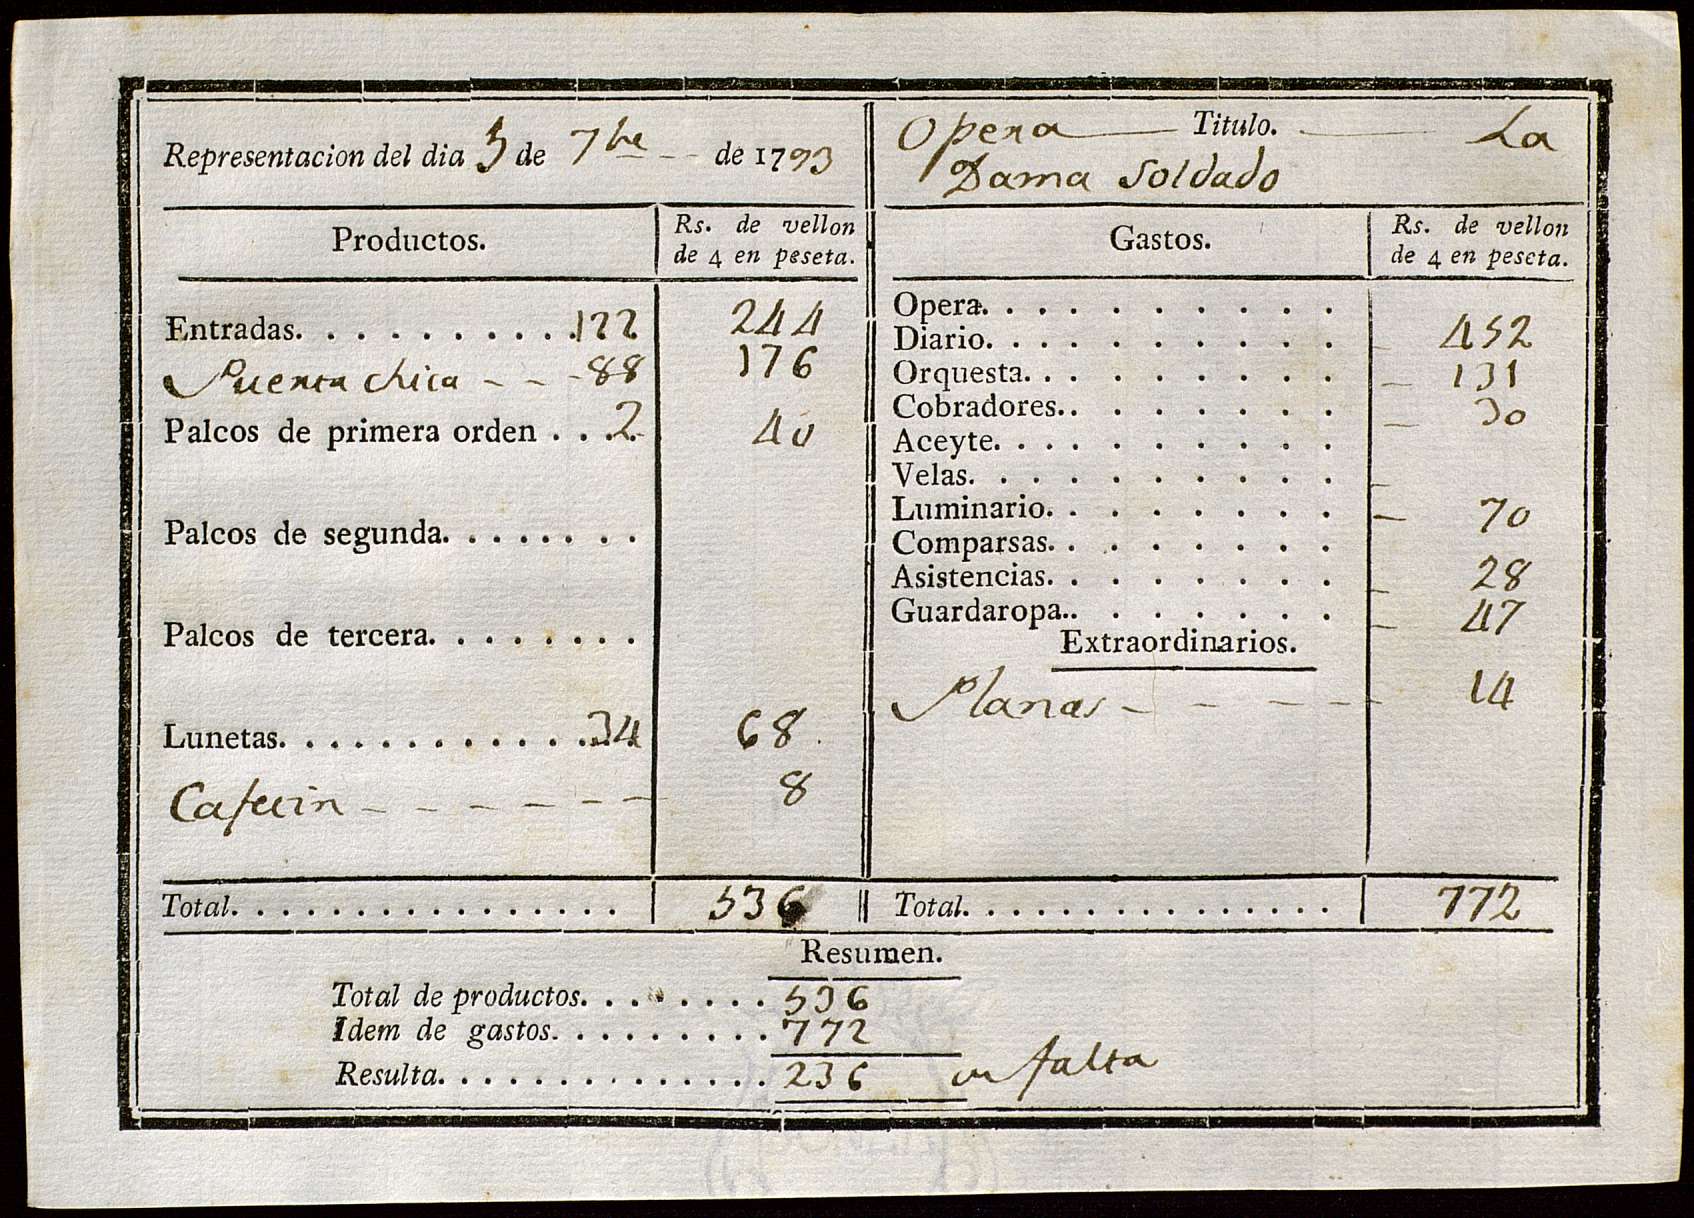 Representacion del dia 5 de 7bre de 1793
Opera Titulo. La
Dama Soldado
Productos. Rs. de vellon de 4 en peseta.
Entradas. . . . . . . . . . 122 244
Puerta chica - - - 88 176
Palcos de primera orden . . . 2 40
Palcos de segunda. . . . . . . .
Palcos de tercera. . . . . . . .
Lunetas. . . . . . . . . . . . . 34 68
8
Total. . . . . . . . . . . . . . . . 536
Gastos. Rs. de vellon de 4 en peseta.
Opera. . . . . . . . . .
Diario. . . . . . . . . . 452
Orquesta. . . . . . . . . 131
Cobradores. . . . . . . . 30
Aceyte. . . . . . . . . .
Velas. . . . . . . . . .
Luminario. . . . . . . . 70
Comparsas. . . . . . . .
Asistencias. . . . . . . . 28
Guardaropa. . . . . . . . 47
Extraordinarios.
Planas - - - - - 14
Total. . . . . . . . . . . . . . . 772
Resumen.
Total de productos. . . . . . . . 536
Idem de gastos. . . . . . . . . 772
Resulta. . . . . . . . . . . . . . 236 en falta